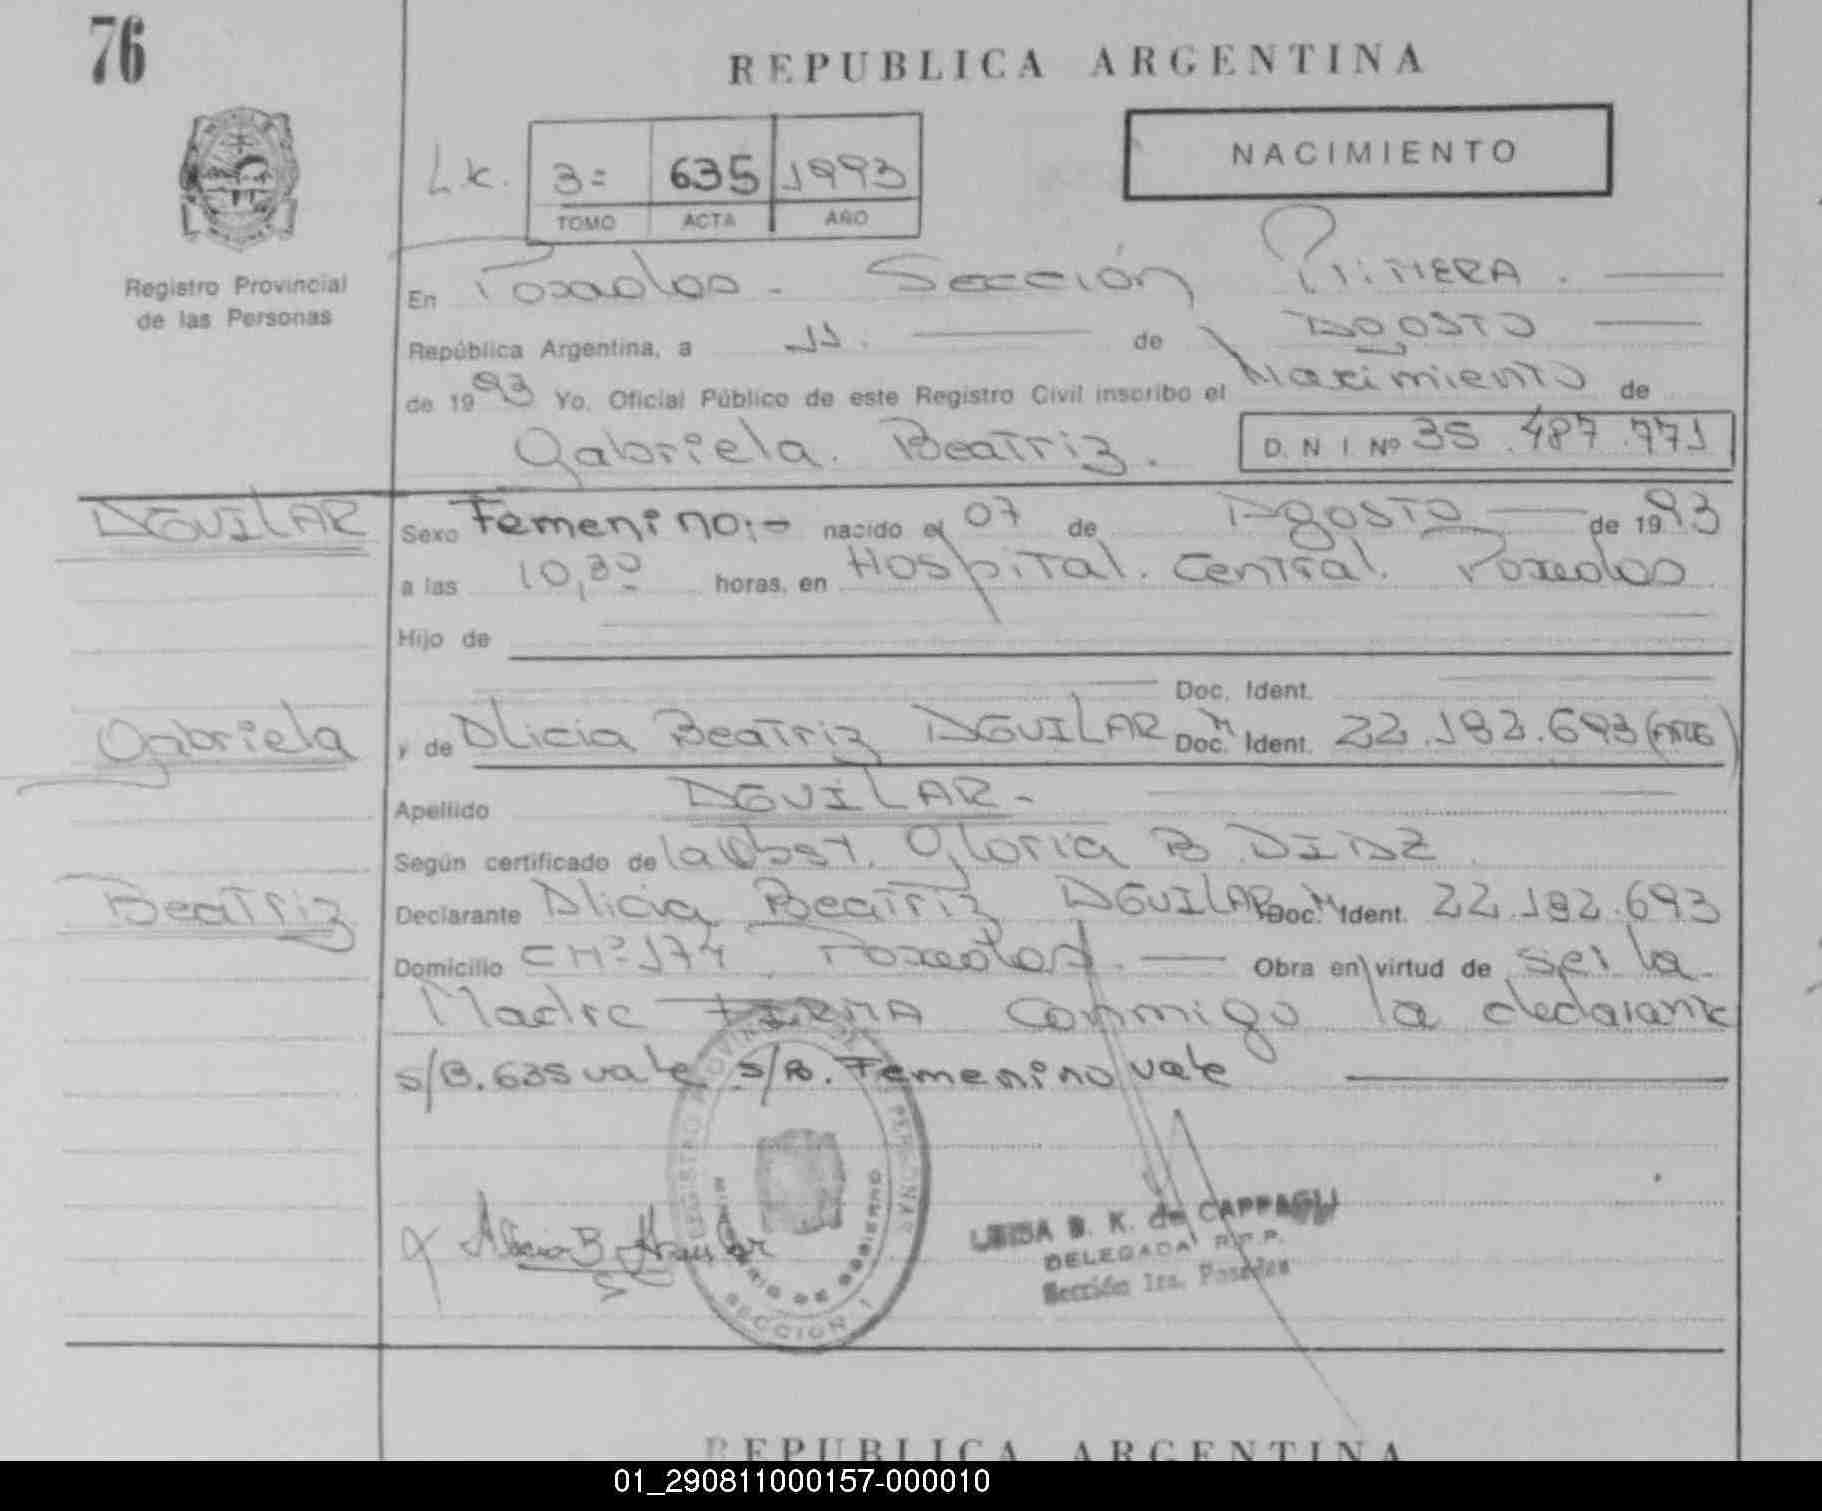 76
REPUBLICA ARGENTINA
NACIMIENTO
L.K. 3= 635 1993
TOMO ACTA AÑO
Registro Provincial
de las Personas
En Posadas - Sección PRIMERA.
República Argentina, a 11. de AGOSTO
de 1993 Yo. Oficial Público de este Registro Civil inscribo el Nacimiento de
Gabriela. Beatriz. D. N I. Nº 35.487.771
AGUILAR
Sexo Femenino:- nacido el 07 de Agosto de 1993
a las 10,30 horas, en Hospital. Central. Posadas
Hijo de
Doc. Ident.
Gabriela
y de Alicia Beatriz AGUILAR Doc. Ident. 22.182.693
Apellido AGUILAR-
Según certificado de la Obst. Gloria B. DIAZ
Beatriz
Declarante Alicia Beatriz AGUILAR Doc. Ident. 22.182.693
Domicilio CHº174 Posadas. Obra en virtud de ser la
Madre FIRMA conmigo la declarante
s/B. 635 vale s/B. Femenino vale
Alicia B. Aguilar
REGISTRO PROVINCIAL DE LAS PERSONAS
MINISTERIO DE GOBIERNO
SECCION 1
LUISA B. K. de CAPPAGLI
DELEGADA R.P.P.
Sección 1ra. Posadas
REPUBLICA ARGENTINA
01_290811000157-000010